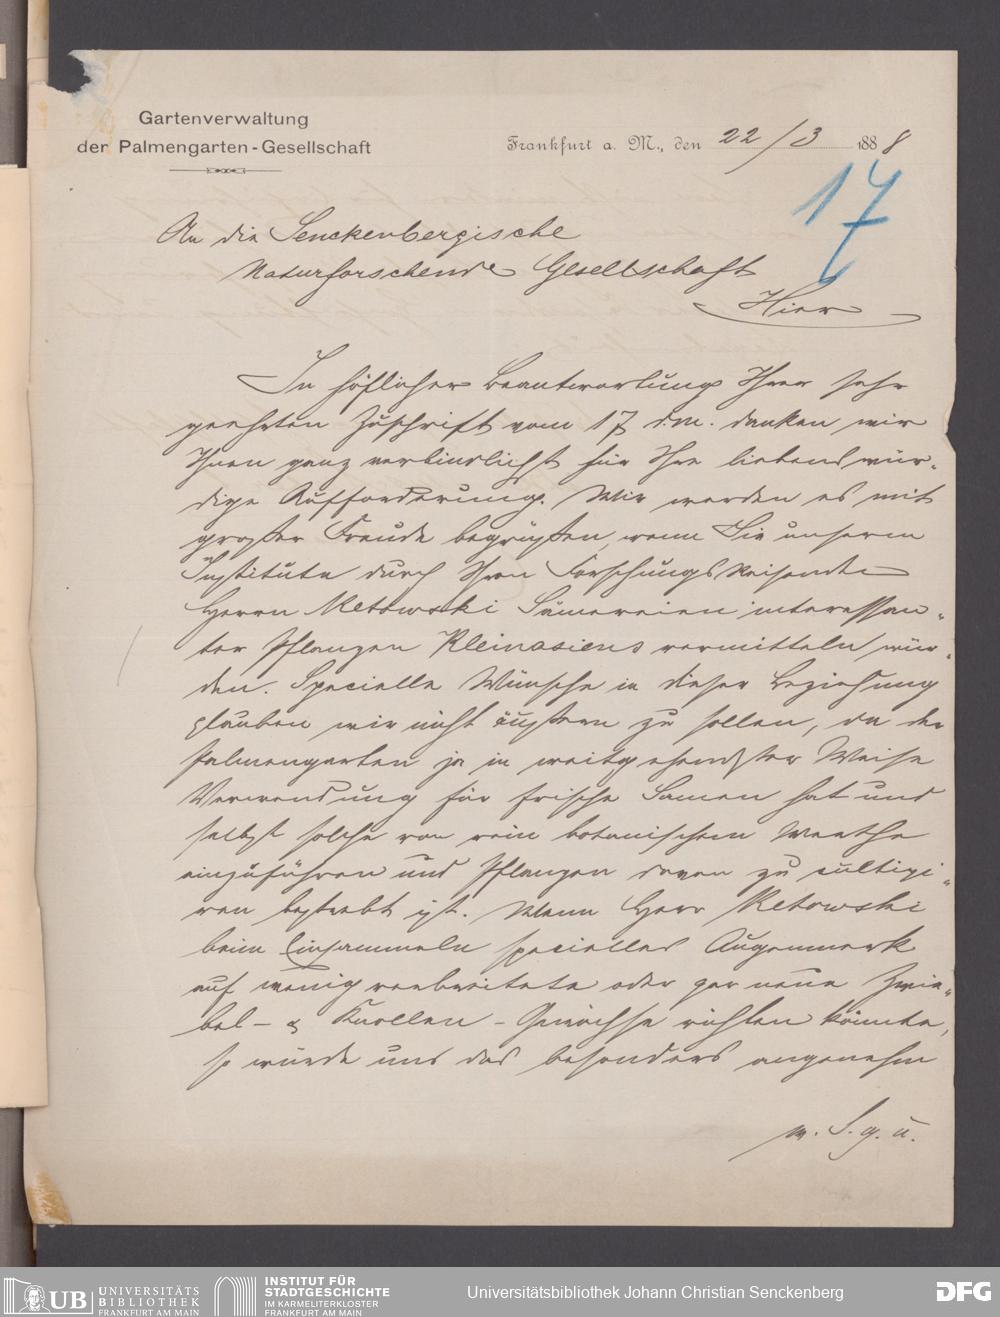 Gartenverwaltung
der Palmengarten-Gesellschaft
Frankfurt a. M., den 22/3 1888
17
An die Senckenbergische
Naturforschende Gesellschaft
Hier
In höflicher Beantwortung Ihrer sehr
geehrten Zuschrift vom 17 d.m. danken wir
Ihnen ganz verbindlichst für Ihre liebenswür-
dige Aufforderung. Wir werden es mit
großer Freude begrüßen, wenn Sie unserem
Institute durch Ihren Forschungsreisenden
Herrn Retowski Sämereien interessan-
ter Pflanzen Kleinasiens vermitteln wür-
den. Specielle Wünsche in dieser Beziehung
glauben wir nicht äußern zu sollen, da der
Palmengarten ja in weitgehendster Weise
Verwendung für frische Samen hat und
selbst solche von rein botanischem Werthe
einzuführen und Pflanzen davon zu cultivi-
ren bestrebt ist. Wenn Herr Retowski
beim Einsammeln specielles Augenmerk
auf wenig verbreitete oder gar neue Zwie-
bel- & Knollen-Gewächse richten könnte,
so würde uns das besonders angenehm
w. S. g. u.
UB UNIVERSITÄTS
BIBLIOTHEK
FRANKFURT AM MAIN
INSTITUT FÜR
STADTGESCHICHTE
IM KARMELITERKLOSTER
FRANKFURT AM MAIN
Universitätsbibliothek Johann Christian Senckenberg
DFG